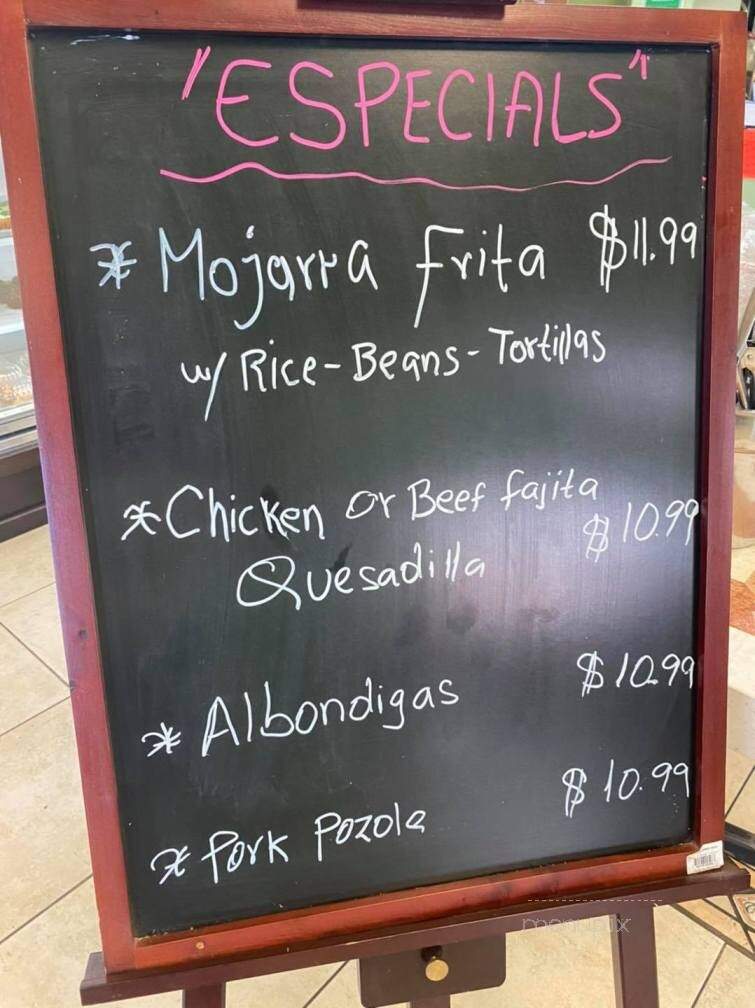 "ESPECIALS"
* Mojarra frita $11.99
w/ Rice-Beans-Tortillas
* Chicken or Beef fajita
Quesadilla $10.99
* Albondigas $10.99
* Pork Pozole $10.99
menupix